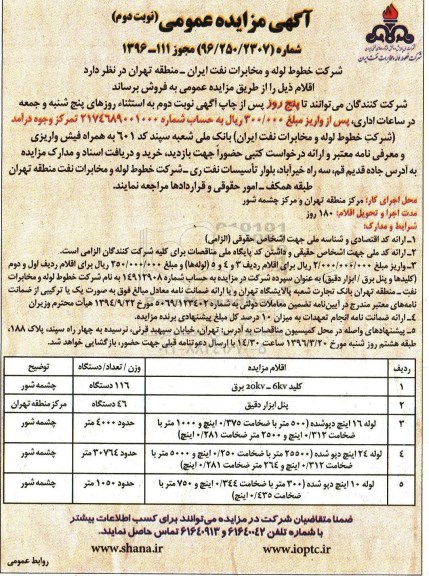 آگهی مزایده عمومی (نوبت دوم)
شماره (۹۶/۲۵۰/۲۳۰۷) مجوز ۱۱۱ــ۱۳۹۶
شرکت خطوط لوله و مخابرات نفت ایران ــ منطقه تهران در نظر دارد
اقلام ذیل را از طریق مزایده عمومی به فروش برساند
شرکت کنندگان می‌توانند تا پنج روز پس از چاپ آگهی نوبت دوم به استثناء روزهای پنج شنبه و جمعه
در ساعات اداری، پس از واریز مبلغ ۳۰۰/۰۰۰ ریال به حساب شماره ۲۱۷۴۶۸۹۰۰۱۰۰۰ تمرکز وجوه درآمد
(شرکت خطوط لوله و مخابرات نفت ایران) بانک ملی شعبه سپند کد ۶۰۱ به همراه فیش واریزی
و معرفی نامه معتبر و ارائه درخواست کتبی حضوراً جهت بازدید، خرید و دریافت اسناد و مدارک مزایده
به آدرس جاده قدیم قم، سه راه خیرآباد، بلوار تأسیسات نفت ری ــ شرکت خطوط لوله و مخابرات نفت منطقه تهران
طبقه همکف ــ امور حقوقی و قراردادها مراجعه نمایند.
محل اجرای کار: مرکز منطقه تهران و مرکز چشمه شور
مدت اجرا و تحویل اقلام: ۱۸۰ روز
شرایط و مدارک:
۱ــ ارائه کد اقتصادی و شناسه ملی جهت اشخاص حقوقی (الزامی)
۲ــ ارائه کد ملی جهت اشخاص حقیقی و داشتن کد پایگاه ملی مناقصات برای کلیه شرکت کنندگان الزامی است.
۳ــ واریز مبلغ ۲/۰۰۰/۰۰۰/۰۰۰ ریال برای اقلام ردیف ۳ و ۴ و ۵ (لوله‌ها) و مبلغ ۲۵۰/۰۰۰/۰۰۰ ریال برای اقلام ردیف اول و دوم
(کلیدها و پنل برق / ابزار دقیق) به عنوان سپرده شرکت در مزایده به حساب شماره ۱۴۹۱۲۹۰۸ به نام شرکت خطوط لوله و مخابرات
نفت ــ منطقه تهران بانک تجارت شعبه پالایشگاه تهران و یا ارائه ضمانت نامه بانکی معادل مبالغ فوق به صورت یک یا ترکیبی از ضمانت
نامه‌های معتبر مندرج در آیین‌نامه تضمین معاملات دولتی به شماره ۱۲۳۴۰۲/ت۵۰۶۵۹ مورخ ۱۳۹۴/۹/۲۲ هیأت محترم وزیران
۴ــ ارائه ضمانت نامه انجام تعهدات به میزان ۱۰ درصد کل مبلغ پیشنهادی برنده مزایده.
۵ــ پیشنهادهای واصله در محل کمیسیون مناقصات به آدرس: تهران، خیابان سپهبد قرنی، نرسیده به چهار راه سپند، پلاک ۱۸۸،
طبقه هشتم روز شنبه مورخ ۱۳۹۶/۳/۲۰ ساعت ۱۴/۳۰ با ارسال دعوتنامه قبلی جهت حضور، بازگشایی خواهد شد.
ردیف اقلام مزایده وزن / تعداد / دستگاه توضیح
۱ کلید ۶kv ــ ۲۰kv برق ۱۱۶ دستگاه چشمه شور
۲ پنل ابزار دقیق ۴۶ دستگاه مرکز منطقه تهران
۳ لوله ۱۶ اینچ دپوشده (۵۰۰ متر با ضخامت ۰/۳۷۵ اینچ و ۱۰۰۰ متر با حدود ۴۰۰۰ متر چشمه شور
ضخامت ۰/۳۱۲ اینچ و ۲۵۰۰ متر ضخامت ۰/۲۸۱ اینچ)
۴ لوله ۲۴ اینچ دپو شده (۲۵۵۰۰ متر با ضخامت ۰/۲۵۰ اینچ و ۵۰۰۰ متر با حدود ۳۰۷۶۴ متر چشمه شور
ضخامت ۰/۳۱۲ اینچ و ۲۶۴ متر ضخامت ۰/۲۸۱ اینچ)
۵ لوله ۱۰ اینچ دپو شده (۳۰۰ متر با ضخامت ۰/۳۴۴ اینچ و ۷۵۰ متر با حدود ۱۰۵۰ متر چشمه شور
ضخامت ۰/۴۳۵ اینچ)
ضمنا متقاضیان شرکت در مزایده می‌توانند برای کسب اطلاعات بیشتر
با شماره تلفن ۶۱۶۴۰۰۴۲ و ۶۱۶۴۰۹۱۳ تماس حاصل نمایند.
www.shana.ir www.ioptc.ir
روابط عمومی